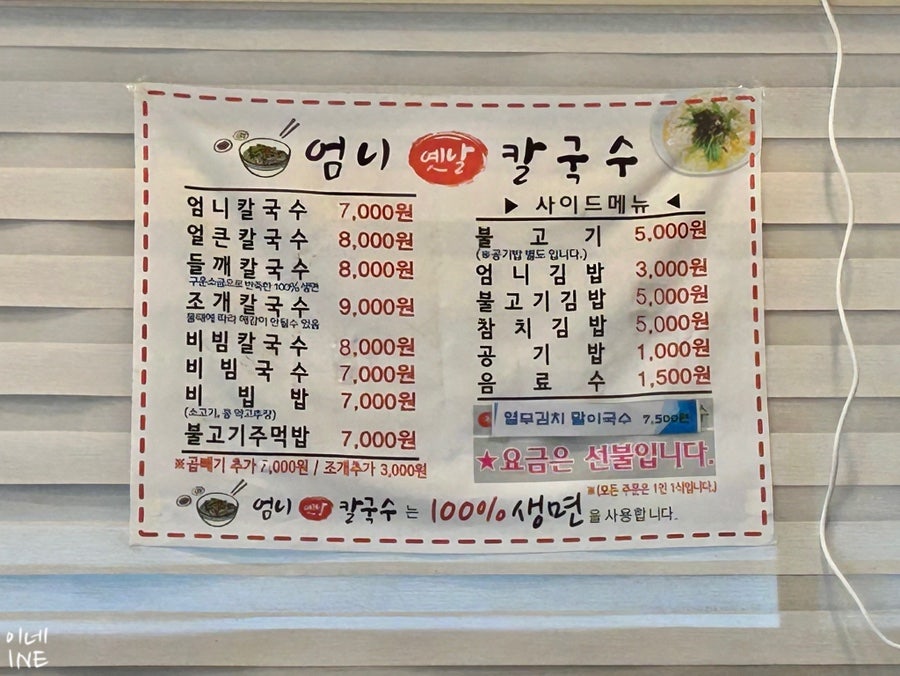 엄니 옛날 칼국수
엄니칼국수 7,000원
얼큰칼국수 8,000원
들깨칼국수 8,000원
구운소금으로 반죽한 100% 생면
조개칼국수 9,000원
물때에 따라 해감이 안될수 있음
비빔칼국수 8,000원
비빔국수 7,000원
비빕밥 7,000원
(소고기, 콩 약고추장)
불고기주먹밥 7,000원
※곱빼기 추가 1,000원 / 조개추가 3,000원
▶ 사이드메뉴 ◀
불고기 5,000원
(※공기밥 별도 입니다.)
엄니김밥 3,000원
불고기김밥 5,000원
참치김밥 5,000원
공기밥 1,000원
음료수 1,500원
열무김치 말이국수 7,500원
★요금은 선불입니다.
※(모든 주문은 1인 1식입니다.)
엄니 옛날 칼국수 는 100% 생면 을 사용합니다.
이네
INE